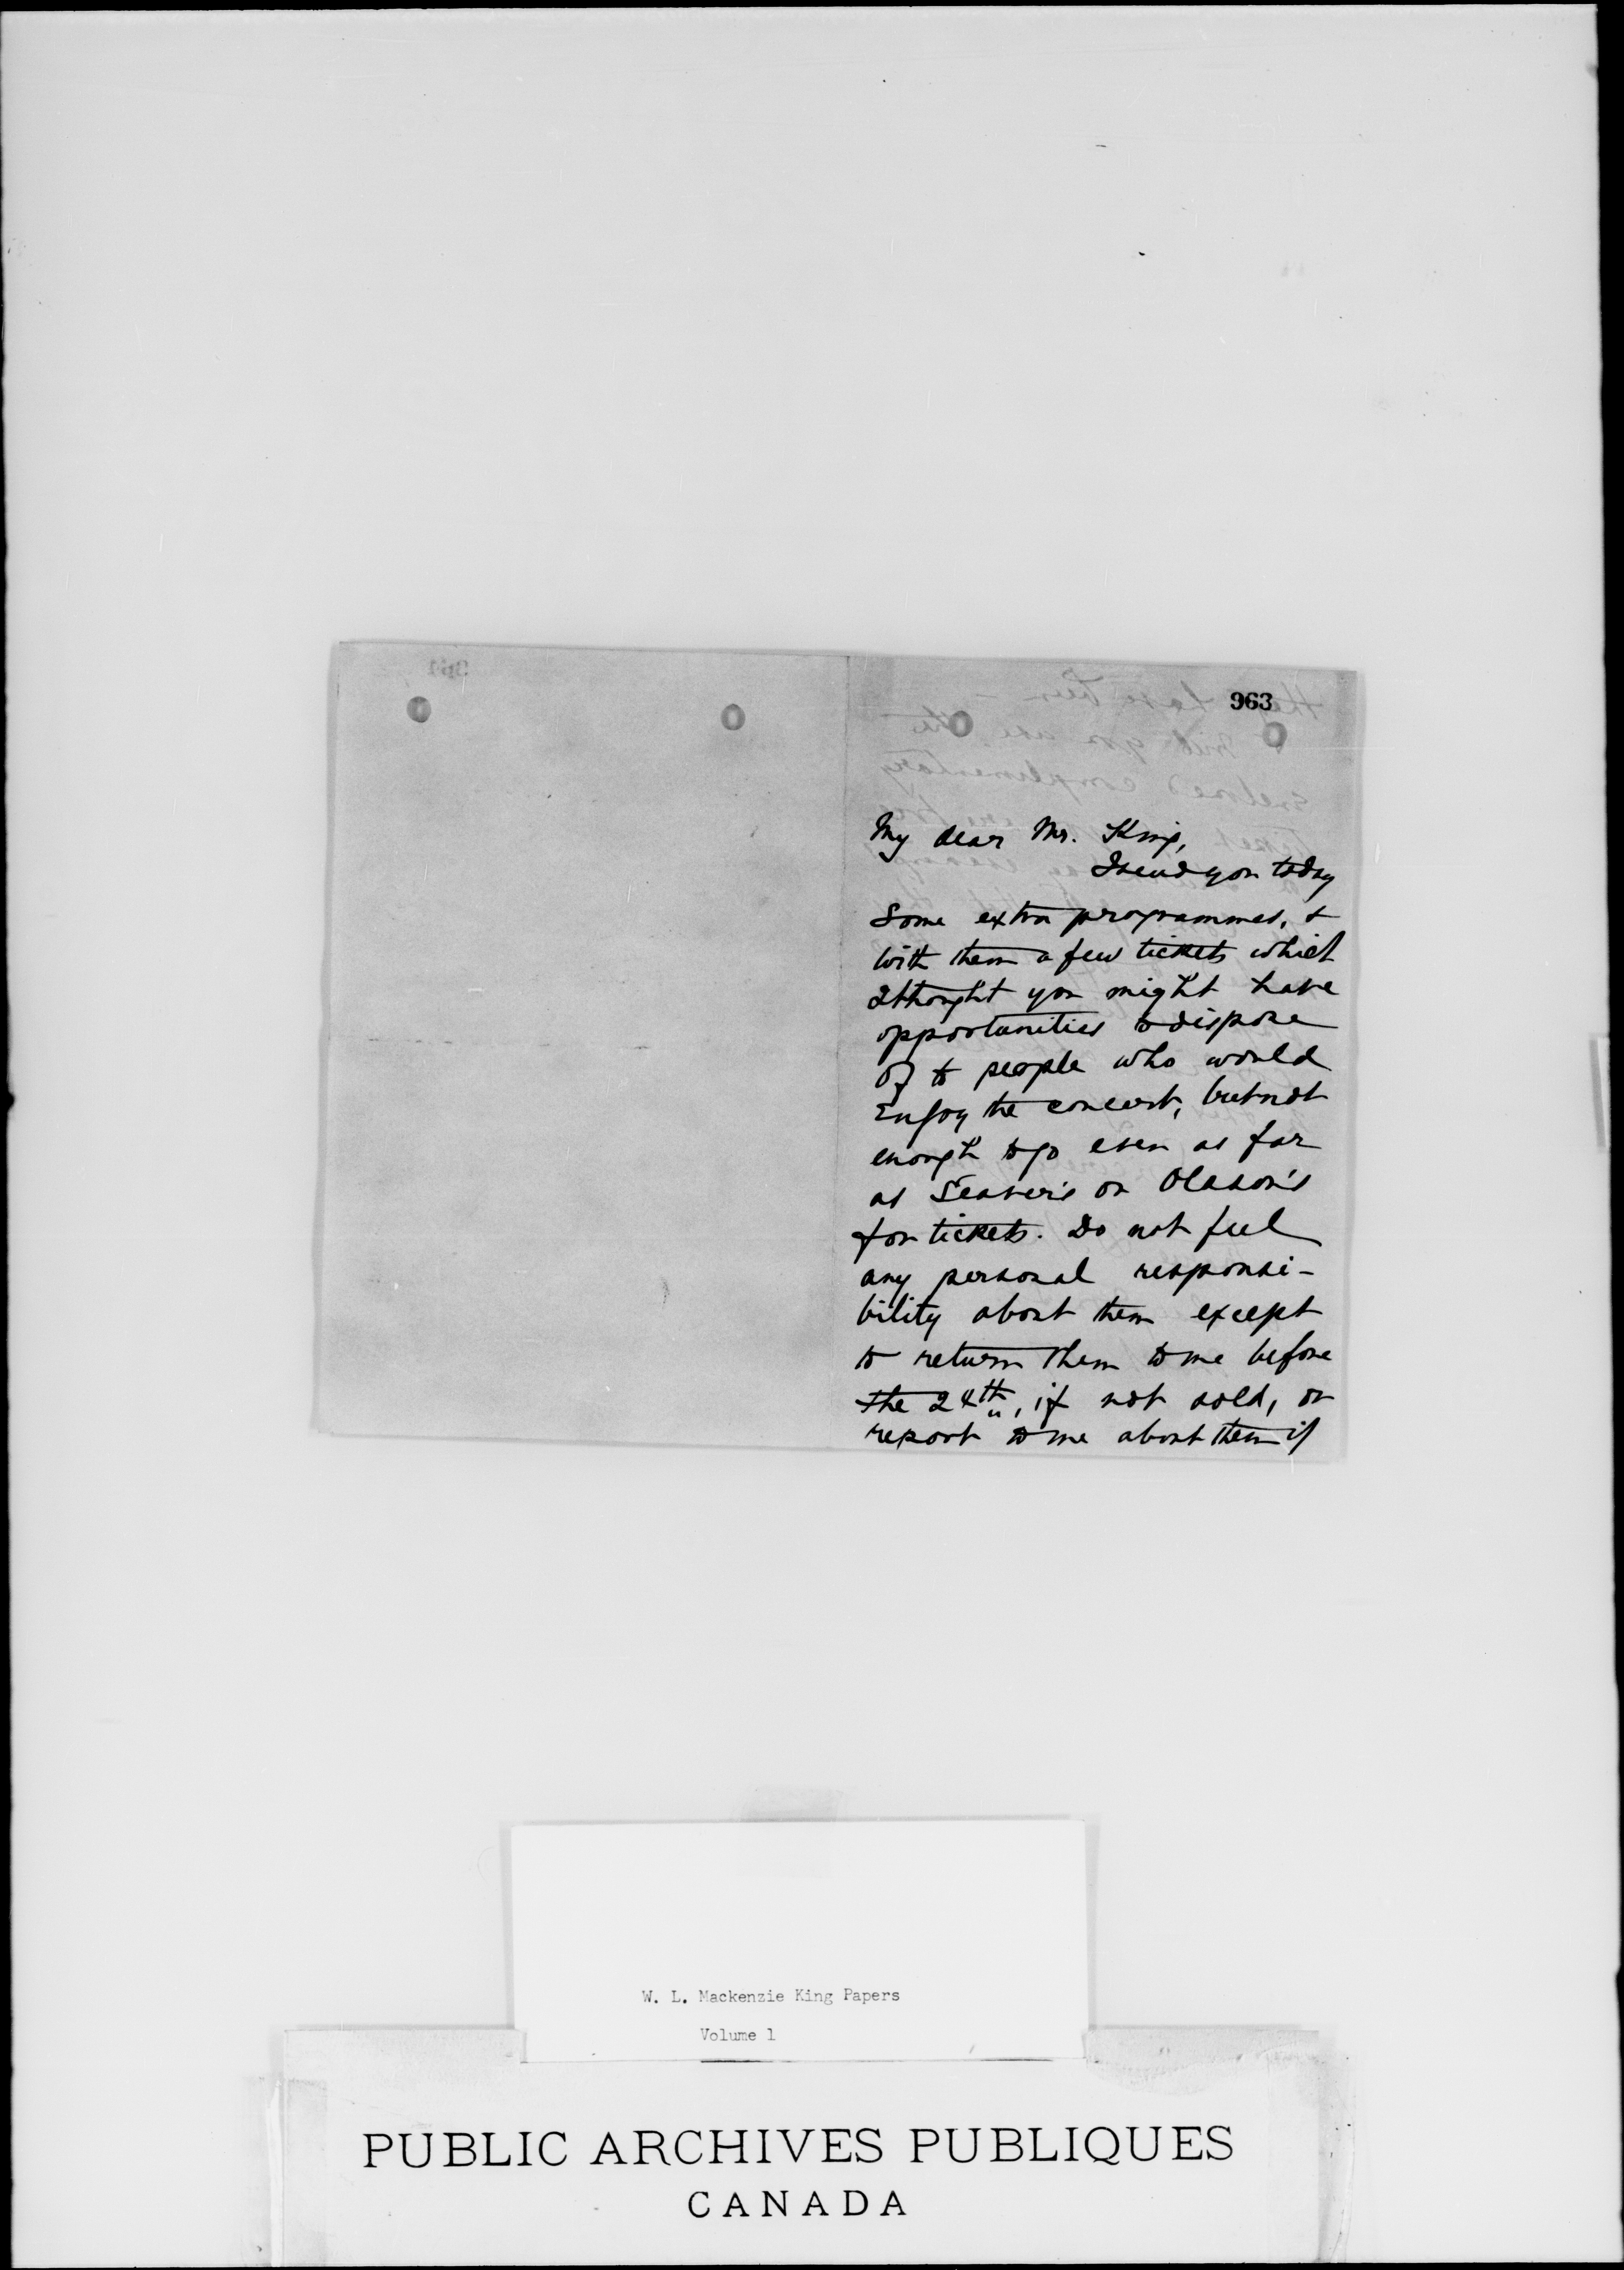 963
My dear Mr. King,
I send you today
some extra programmes, &
with them a few tickets which
I thought you might have
opportunities to dispose
of to people who would
enjoy the concert, but not
enough to go even as far
as Seaver's or Olsson's
for tickets. Do not feel
any personal responsi-
bility about them except
to return them to me before
the 24th, if not sold, or
report to me about them if
W. L. Mackenzie King Papers
Volume 1
PUBLIC ARCHIVES PUBLIQUES
CANADA